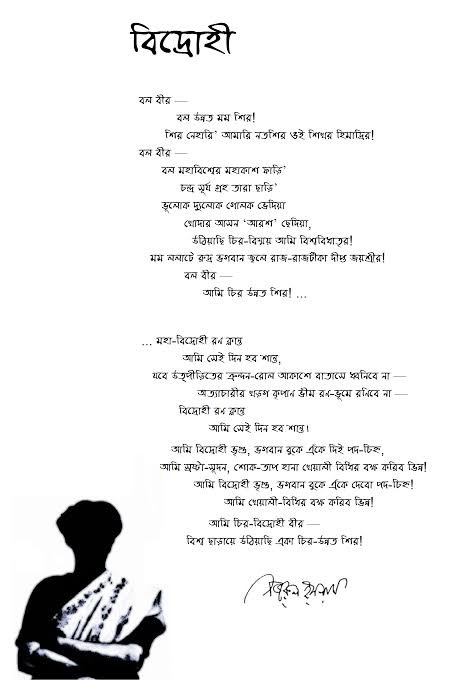 বিদ্রোহী
বল বীর —
বল উন্নত মম শির!
শির নেহারি' আমারি নতশির ওই শিখর হিমাদ্রির!
বল বীর —
বল মহাবিশ্বের মহাকাশ ফাড়ি'
চন্দ্র সূর্য গ্রহ তারা ছাড়ি'
ভূলোক দ্যুলোক গোলক ভেদিয়া
খোদার আসন 'আরশ' ছেদিয়া,
উঠিয়াছি চির-বিস্ময় আমি বিশ্ববিধাতৃর!
মম ললাটে রুদ্র ভগবান জ্বলে রাজ-রাজটীকা দীপ্ত জয়শ্রীর!
বল বীর —
আমি চির উন্নত শির! ...
... মহা-বিদ্রোহী রণ ক্লান্ত
আমি সেই দিন হব শান্ত,
যবে উত্পীড়িতের ক্রন্দন-রোল আকাশে বাতাসে ধ্বনিবে না —
অত্যাচারীর খড়গ কৃপাণ ভীম রণ-ভূমে রণিবে না —
বিদ্রোহী রণ ক্লান্ত
আমি সেই দিন হব শান্ত।
আমি বিদ্রোহী ভৃগু, ভগবান বুকে এঁকে দিই পদ-চিহ্ন,
আমি স্রষ্টা-সূদন, শোক-তাপ হানা খেয়ালী বিধির বক্ষ করিব ভিন্ন!
আমি বিদ্রোহী ভৃগু, ভগবান বুকে এঁকে দেবো পদ-চিহ্ন!
আমি খেয়ালী-বিধির বক্ষ করিব ভিন্ন!
আমি চির-বিদ্রোহী বীর —
বিশ্ব ছাড়ায়ে উঠিয়াছি একা চির-উন্নত শির!